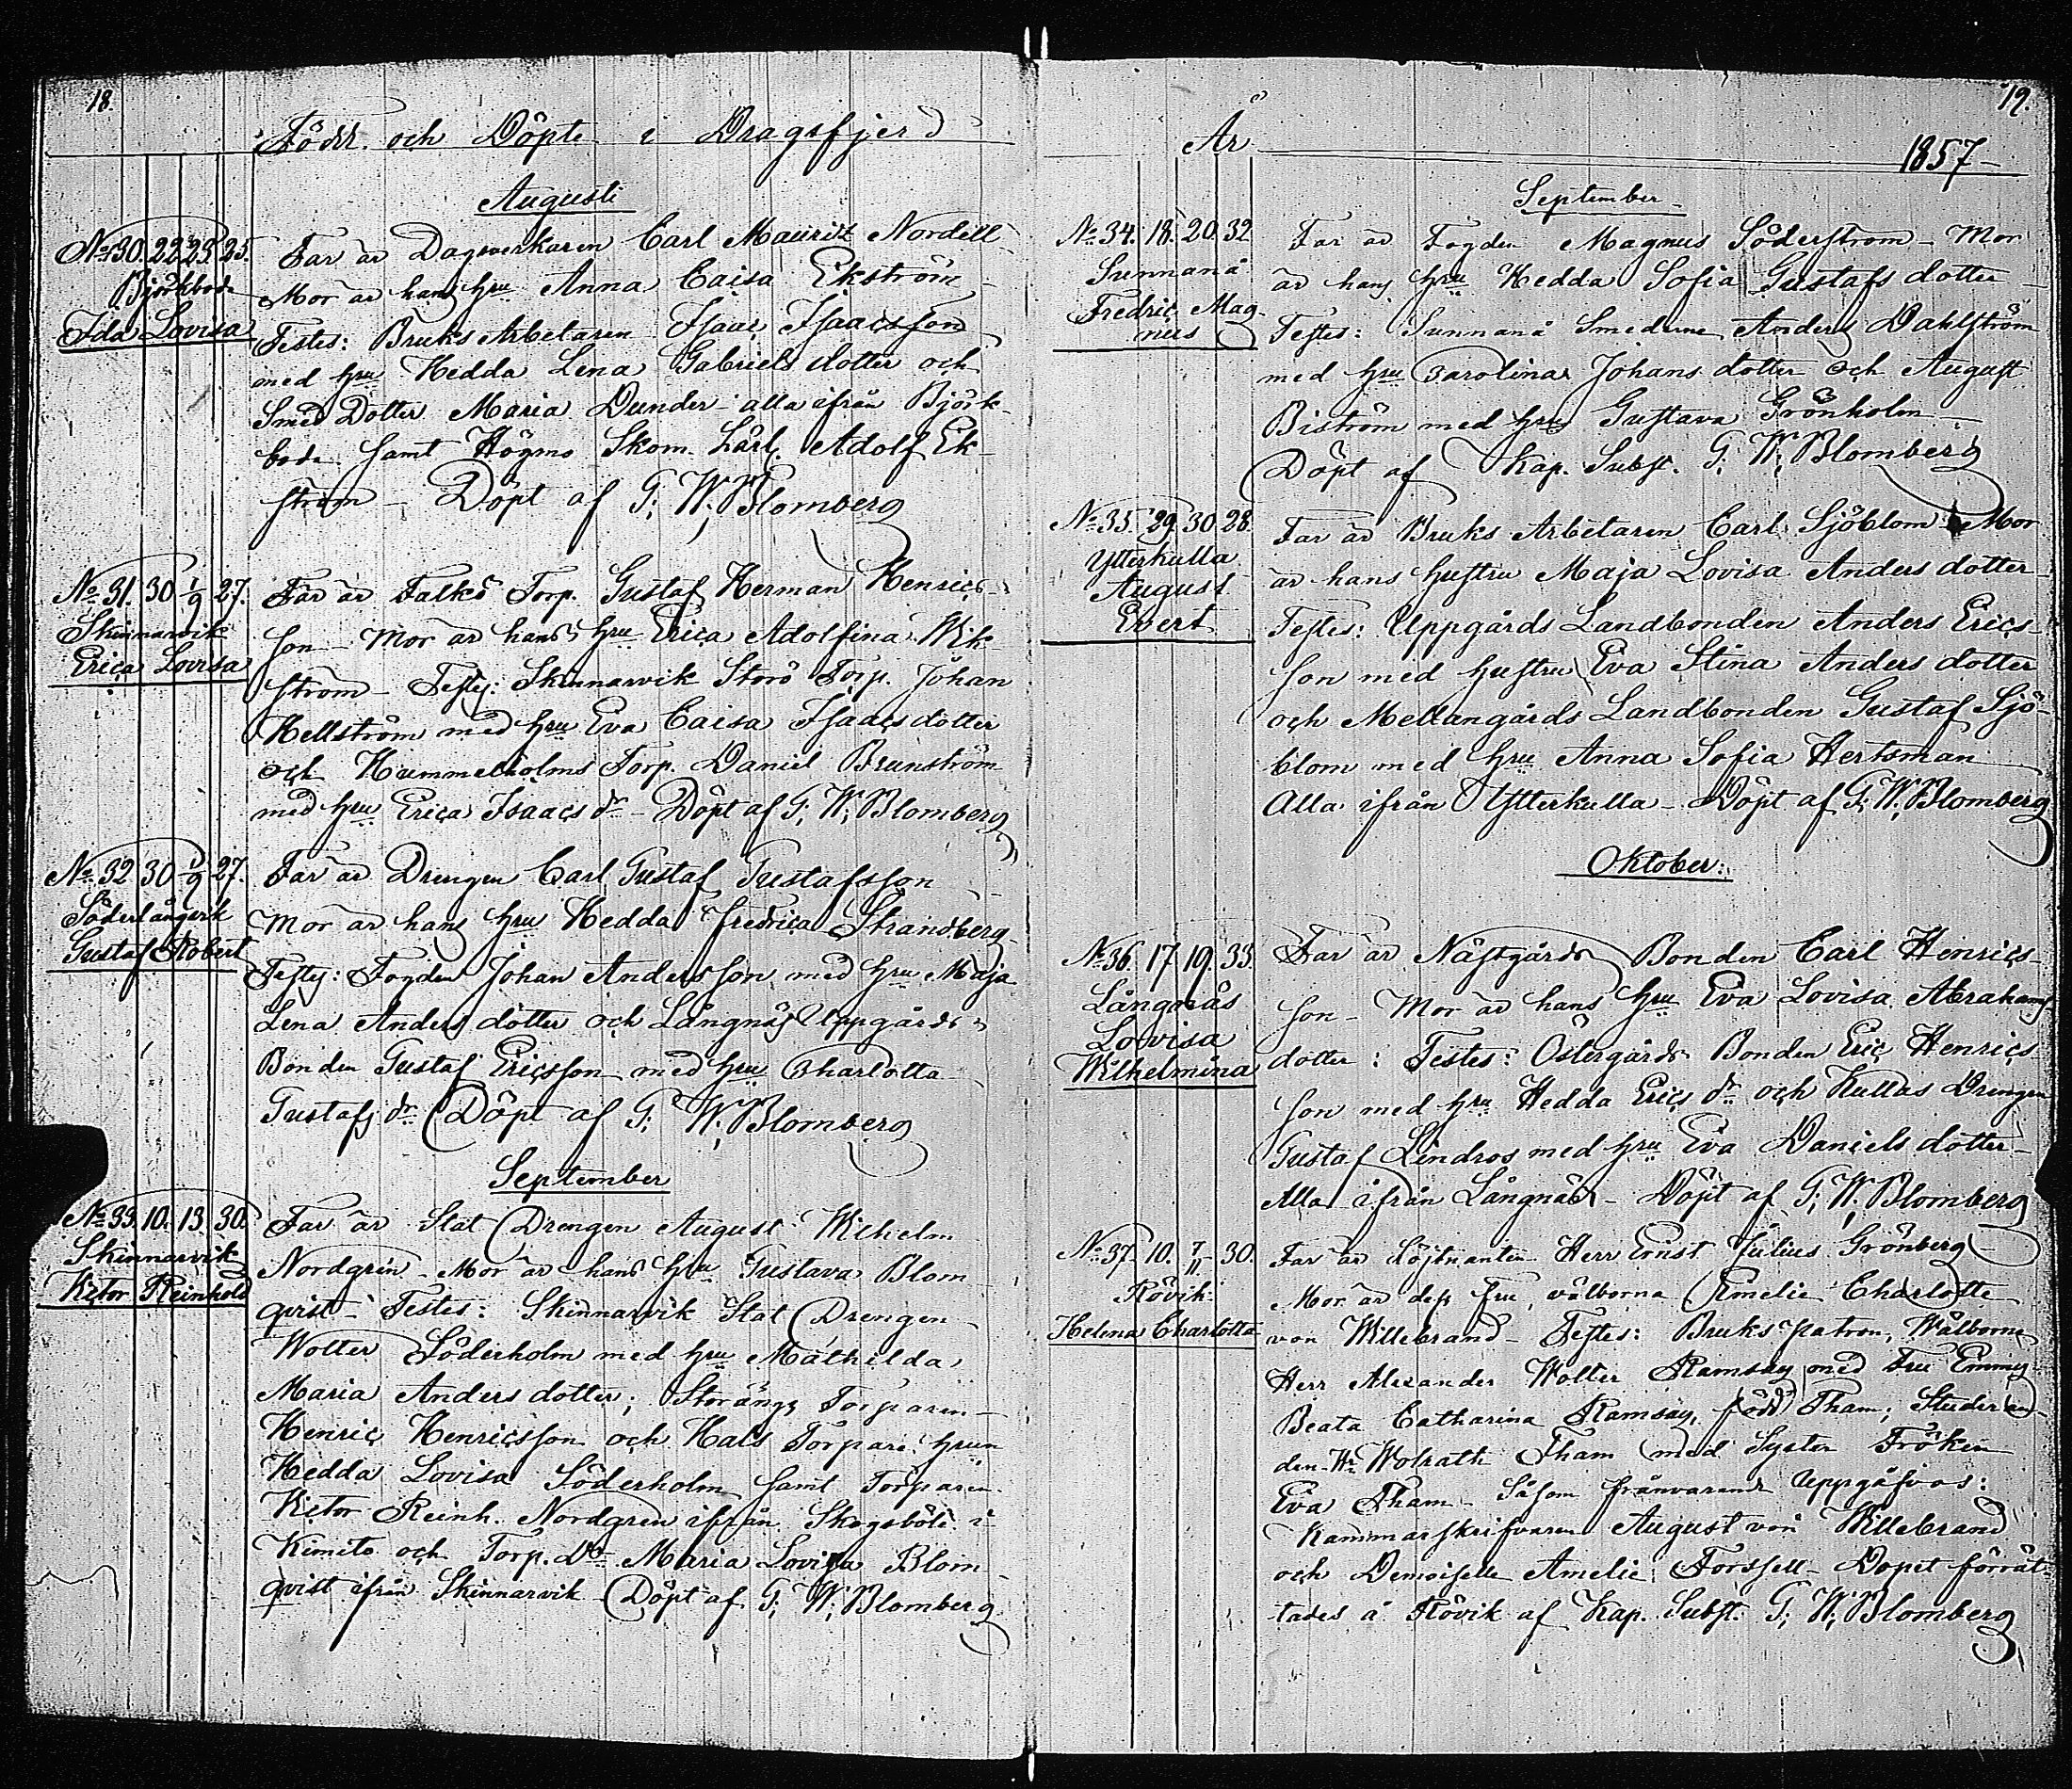 18.
Född. och Döpte i Dragsfjerd
Augusti
No 30. 22 23 25.
Björkboda
Ida Lovisa
Far är Dagsverkaren Carl Mauritz Nordell
Mor är hans hru Anna Caisa Ekström
Testes: Bruks Arbetaren Isaac Isaacsson
med hru Hedda Lena Gabriels dotter och
Smed Dotter Maria Dunder alla ifrån Björk-
boda samt Högmo Skom. Lärl. Adolf Ek-
ström – Döpt af G. W. Blomberg
No 31. 30 1/9 27.
Skinnarvik
Erica Lovisa
Far är Falkö Torp. Gustaf Herman Henrics-
son – Mor är hans hru Erica Adolfina Wik-
ström – Testes: Skinnarvik Storö Torp. Johan
Hellström med hru Eva Caisa Isaacs dotter
och Hummelholms Torp. Daniel Brunström
med hru Erica Isaacs dr – Döpt af G. W. Blomberg
No 32 30 1/9 27.
Söderlångvik
Gustaf Robert
Far är Drengen Carl Gustaf Gustafsson
Mor är hans hru Hedda Fredrica Strandberg
Testes: Fogden Johan Andersson med hru Maja
Lena Anders dotter och Långnäs Uppgårds
Bonden Gustaf Ericsson med hru Charlotta
Gustafs dr Döpt af G. W. Blomberg
September
No 33. 10. 13. 30.
Skinnarvik
Victor Reinhold
Far är Stat Drengen August Wilhelm
Nordgren – Mor är hans hru Gustava Blom-
qvist – Testes: Skinnarvik Stat Drengen
Wolter Söderholm med hru Mathilda
Maria Anders dotter; Storängs Torparen
Henric Henricsson och Hals Torpare hrun
Hedda Lovisa Söderholm samt Torparen
Victor Reinh. Nordgren ifrån Skogsböle i
Kimito och Torp. Dr Maria Lovisa Blom-
qvist ifrån Skinnarvik Döpt af G. W. Blomberg
19.
År
1857
September
No 34. 18. 20. 32
Sunnanå
Fredric Mag-
nus
Far är Fogden Magnus Söderström – Mor
är hans hru Hedda Sofia Gustafs dotter
Testes: Sunnanå Smederne Anders Dahlström
med hru Carolina Johans dotter och August
Biström med hru Gustava Grönholm
Döpt af Kap. Subst. G. W. Blomberg
No 35. 29 30 28.
Ytterkulla
August
Evert
Far är Bruks Arbetaren Carl Sjöblom Mor
är hans hustru Maja Lovisa Anders dotter
Testes: Uppgårds Landbonden Anders Erics-
son med hustru Eva Stina Anders dotter
och Mellangårds Landbonden Gustaf Sjö-
blom med hru Anna Sofia Hertsman
Alla ifrån Ytterkulla – Döpt af G. W. Blomberg
Oktober:
No 36. 17. 19. 33.
Långnäs
Lovisa
Wilhelmina
Far är Nästgårds Bonden Carl Henrics-
son – Mor är hans hru Eva Lovisa Abrahams
dotter: Testes: Östergårds Bonden Eric Henrics-
son med hru Hedda Erics dr och Kullas Drengen
Gustaf Lindros med hru Eva Daniels dotter –
Alla ifrån Långnäs – Döpt af G. W. Blomberg
No 37. 10. 7/11 30.
Rövik
Helena Charlotta
Far är Löjtnanten Herr Ernst Julius Grönberg
Mor är dess fru, välborna Amelie Charlotte
von Willebrand – Testes: Bruks patron, Wälborne
Herr Alexander Wolter Ramsay med Fru Emmy
Beata Catharina Ramsay, född Tham; Studeran-
den Hr Wolrath Tham med Syster Fröken
Eva Tham – Såsom frånvarande uppgåfvos:
Kammarskrifvaren August von Willebrand
och Demoiselle Amelie Forssell – Dopet förrät-
tades å Rövik af Kap. Subst. G. W. Blomberg